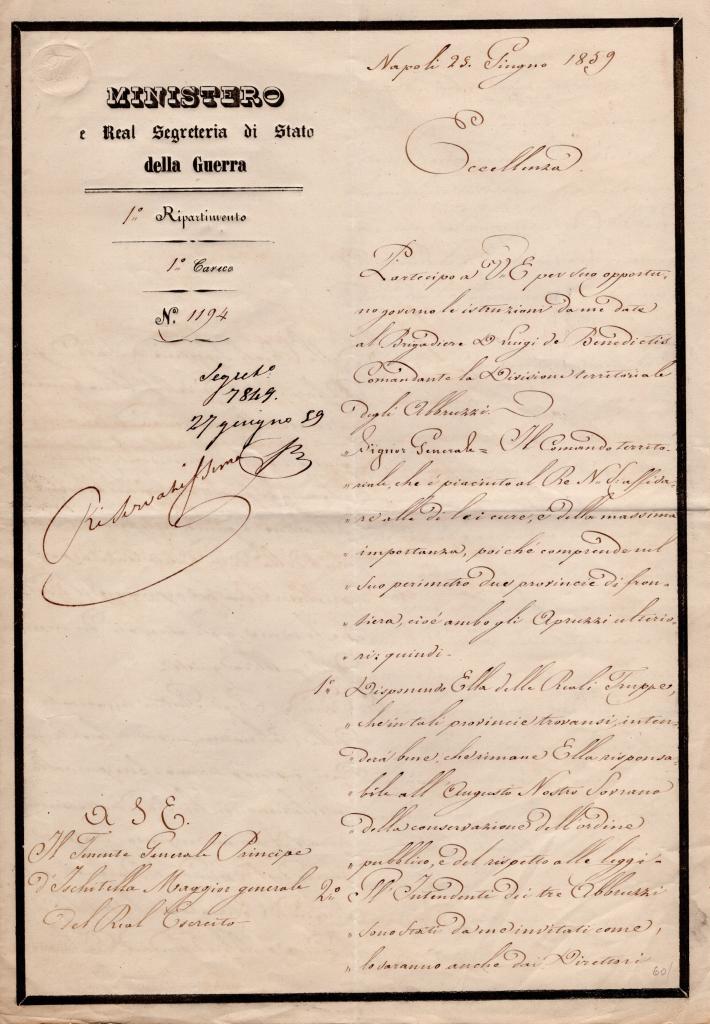 MINISTERO
e Real Segreteria di Stato
della Guerra
1º Ripartimento
1º Carico
Nº. 1194
Segretº
7849.
27 giugno 59
Riservatissima
Napoli 25. Giugno 1859
Eccellenza.
Partecipo a V. E per suo opportu-
no governo le istruzioni da me date
al Brigadiere D. Luigi de Benedictis
Comandante la Divisione territoriale
degli Abbruzzi.
Signor Generale = Il Comando territo-
" riale, che è piaciuto al Re N. S. affida-
" re alle di lei cure, è della massima
" importanza, poiché comprende nel
" suo perimetro due provincie di fron-
" tiera, cioè ambo gli Apruzzi ulterio-
" ri; quindi-
1º Disponendo Ella delle Reali Truppe,
" che in tali provincie trovansi, inten-
" derà bene, che rimane Ella responsa-
" bile all'Augusto Nostro Sovrano
" della conservazione dell'ordine
" pubblico, e del rispetto alle leggi-
2º Gl'Intendenti dei tre Abbruzzi
" sono stati da me invitati come,
" lo saranno anche dai Direttori
A S. E.
Il Tenente Generale Principe
d'Ischitella Maggior generale
del Real Esercito
60/